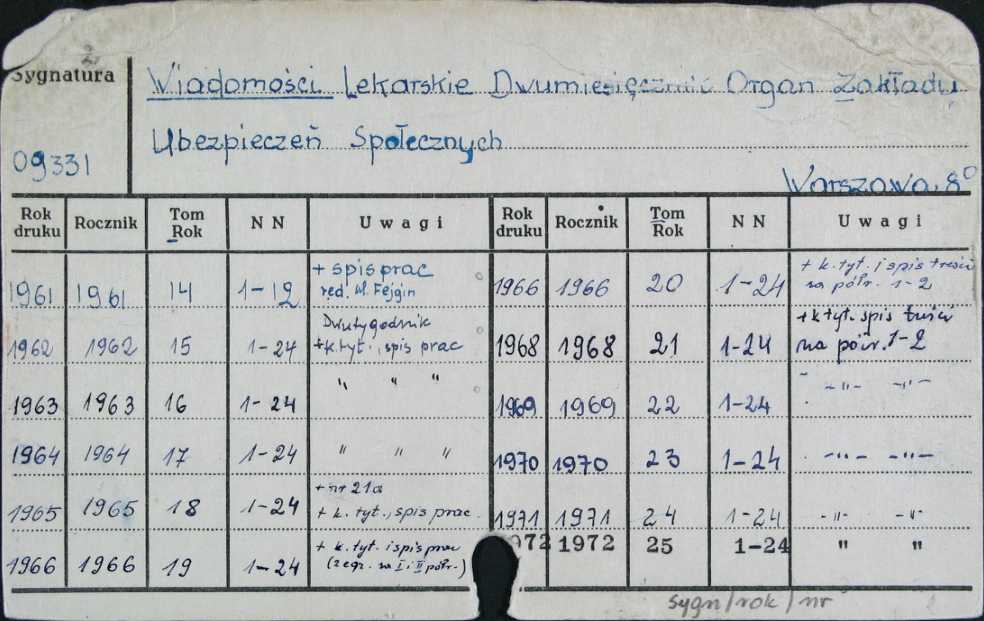 2
Sygnatura
Wiadomości Lekarskie Dwumiesięcznik Organ Zakładu
Ubezpieczeń Społecznych
09331
Warszawa 8°
Rok druku Rocznik Tom Rok NN Uwagi Rok druku Rocznik Tom Rok NN Uwagi
1961 1961 14 1-12 + spis prac red. M. Fejgin
1962 1962 15 1-24 Dwutygodnik +k.tyt., spis prac
1963 1963 16 1-24 " " "
1964 1964 17 1-24 " " "
1965 1965 18 1-24 + nr 21a + k. tyt., spis prac.
1966 1966 19 1-24 + k. tyt. i spis prac (2 egz. na I i II półr.)
1966 1966 20 1-24 + k. tyt. i spis treści na półr. 1-2
1968 1968 21 1-24 +k tyt. spis treści na półr. 1-2
1969 1969 22 1-24 -"- -"-
1970 1970 23 1-24 -"- -"-
1971 1971 24 1-24 -"- -"-
1972 1972 25 1-24 " "
sygn/rok/nr